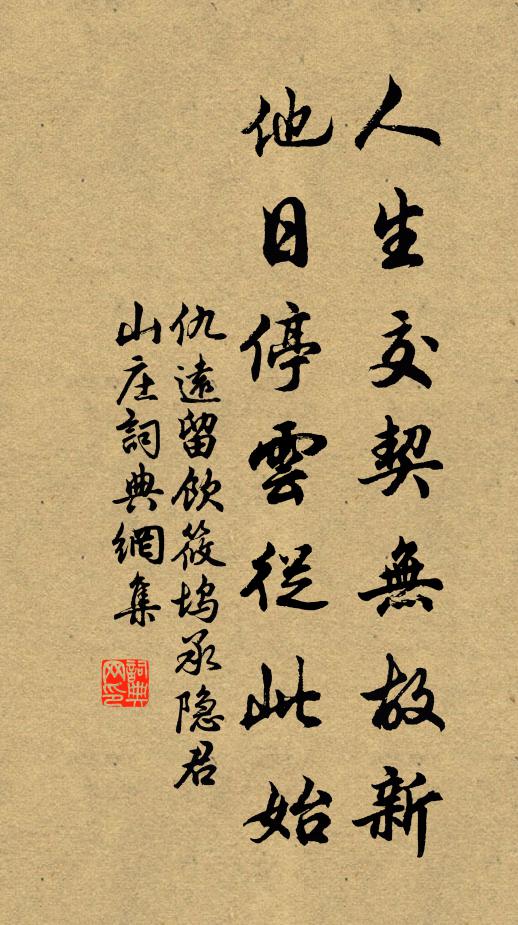 人生交契無故新
他日停雲從此始
仇遠留飲筱塢承隐君
山庄詞典網集
詞典
网印